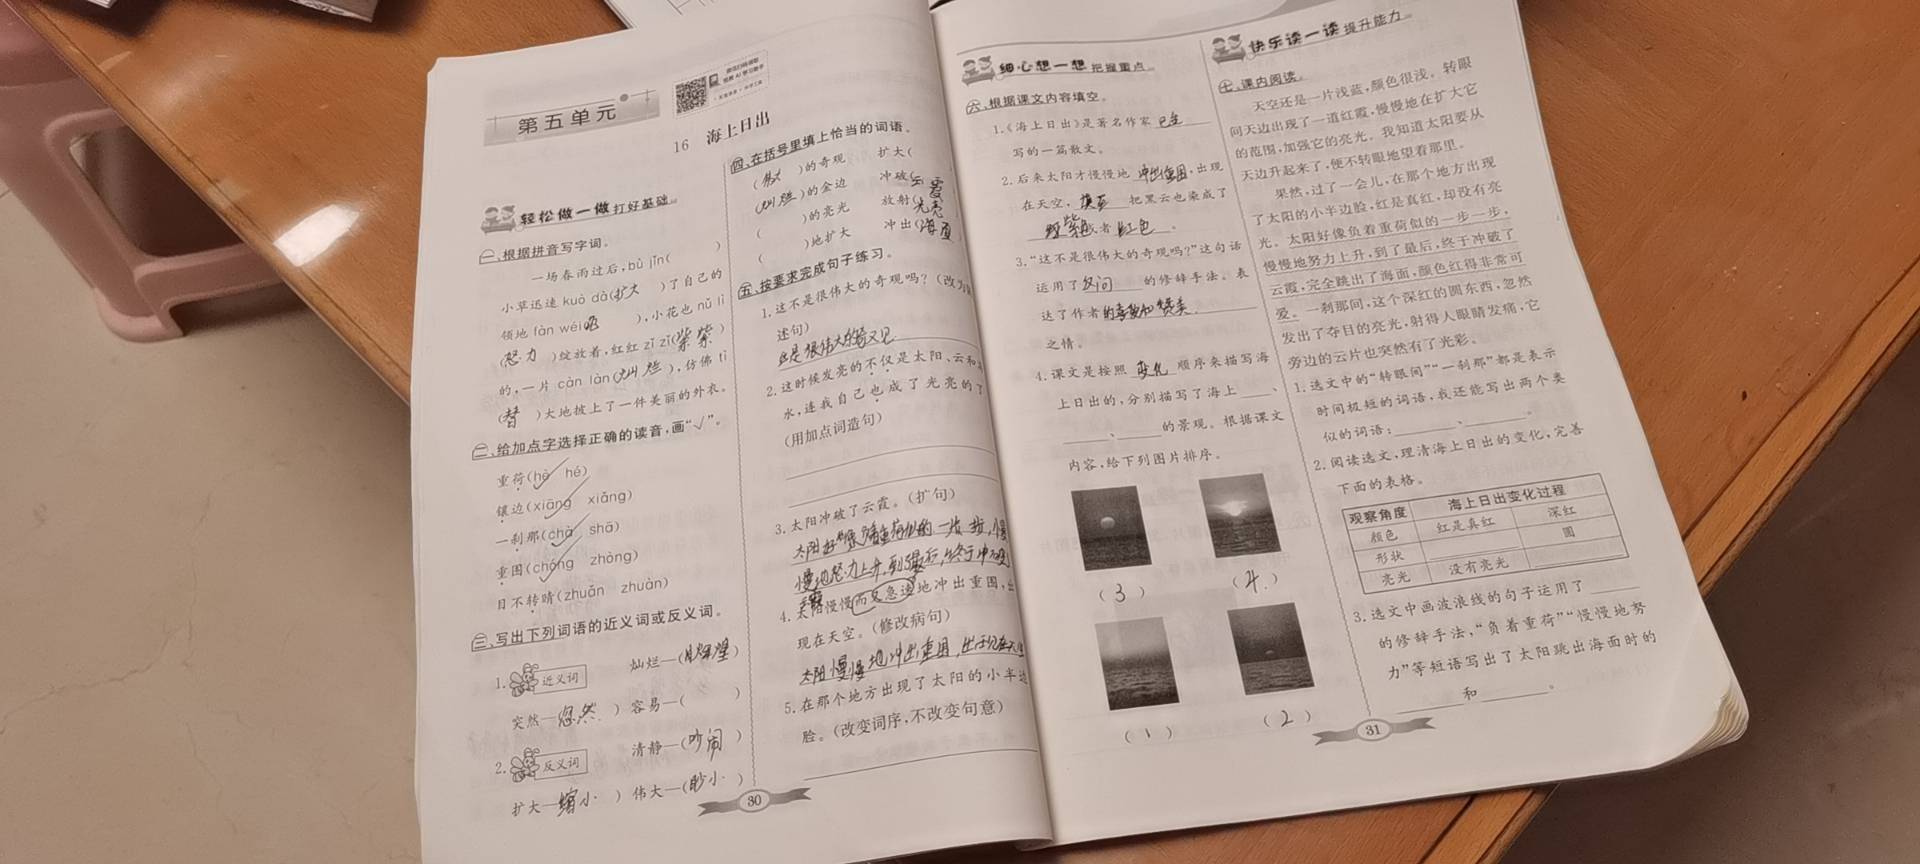 第五单元
16 海上日出
轻松做一做 打好基础
一、根据拼音写字词。
一场春雨过后,bù jǐn(
)
小草迅速 kuò dà(扩大 )了自己的
领地 fàn wéi(
),小花也 nǔ lì
(努力 )绽放着,红红 zǐ zǐ(紫紫 )
的,一片 càn làn(灿烂 ),仿佛 tì
(替 )大地披上了一件美丽的外衣。
二、给加点字选择正确的读音,画“√”。
重荷(hè hé)
镶边(xiāng xiǎng)
一刹那(chà shā)
重围(chóng zhòng)
目不转睛(zhuǎn zhuàn)
三、写出下列词语的近义词或反义词。
1. 近义词
灿烂—( )
突然—(忽然 ) 容易—( )
2. 反义词
清静—(吵闹 )
扩大—(缩小 ) 伟大—(渺小 )
30
四、在括号里填上恰当的词语。
(伟大 )的奇观 扩大(
(灿烂 )的金边 冲破(云霞
( )的亮光 放射(光亮
( )地扩大 冲出(海面)
五、按要求完成句子练习。
1. 这不是很伟大的奇观吗?(改为
述句)
这是很伟大的奇
2. 这时候发亮的不仅是太阳、云和
水,连我自己也成了光亮的了
(用加点词造句)
3. 太阳冲破了云霞。(扩句)
太阳好像负着重荷似的一步一步,慢
慢地努力上升,到了最后,终于冲破
云霞
4. 太阳慢慢而又急速地冲出重围,出
现在天空。(修改病句)
太阳慢慢地冲出重围,出现在天空
5. 在那个地方出现了太阳的小半边
脸。(改变词序,不改变句意)
细心想一想 把握重点
六、根据课文内容填空。
1.《海上日出》是著名作家 巴金
写的一篇散文。
2. 后来太阳才慢慢地 冲出重围,出现
在天空, 把黑云也染成了
紫色 或者 红色 。
3.“这不是很伟大的奇观吗?”这句话
运用了 反问 的修辞手法。表
达了作者的 赞美
之情。
4. 课文是按照 变化 顺序来描写海
上日出的,分别描写了海上 、
、 的景观。根据课文
内容,给下列图片排序。
( 3 ) ( 4 )
( 1 ) ( 2 )
快乐读一读 提升能力
七、课内阅读。
天空还是一片浅蓝,颜色很浅。转眼
间天边出现了一道红霞,慢慢地在扩大它
的范围,加强它的亮光。我知道太阳要从
天边升起来了,便不转眼地望着那里。
果然,过了一会儿,在那个地方出现
了太阳的小半边脸,红是真红,却没有亮
光。太阳好像负着重荷似的一步一步,
慢慢地努力上升,到了最后,终于冲破了
云霞,完全跳出了海面,颜色红得非常可
爱。一刹那间,这个深红的圆东西,忽然
发出了夺目的亮光,射得人眼睛发痛,它
旁边的云片也突然有了光彩。
1. 选文中的“转眼间”“一刹那”都是表示
时间极短的词语,我还能写出两个类
似的词语: 、 。
2. 阅读选文,理清海上日出的变化,完善
下面的表格。
观察角度 海上日出变化过程
颜色 红是真红 深红
形状 圆
亮光 没有亮光
3. 选文中画波浪线的句子运用了
的修辞手法,“负着重荷”“慢慢地努
力”等短语写出了太阳跳出海面时的
和 。
31